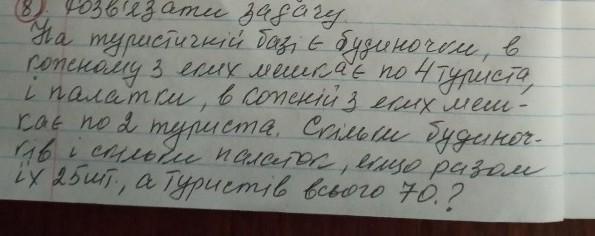 8) Розв'язати задачу
На туристичній базі є будиночки, в
кожному з яких мешкає по 4 туриста,
і палатки, в кожній з яких меш-
кає по 2 туриста. Скільки будиноч-
ків і скільки палаток, якщо разом
їх 25 шт., а туристів всього 70.?